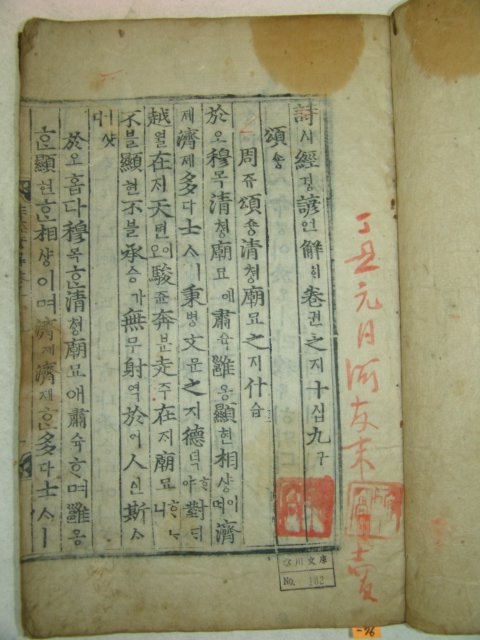 詩시經경諺언解ᄒᆡ卷권之지十십九구
頌숑
周쥬頌숑淸쳥廟묘之지什습
於오穆목淸쳥廟묘애肅슉雝옹顯현相샹이며濟
제濟졔多다士ᄉᆞㅣ秉병文문之지德덕야對ᄃᆡ
越월在ᄌᆡ天텬이오駿쥰奔분走주在ᄌᆡ廟묘ᄒᆞ니
不블顯현不블承승가無무射역於어人인斯ᄉᆞ
於오홉다穆목ᄒᆞᆫ淸쳥廟묘애肅슉ᄒᆞ며雝옹
ᄒᆞᆫ顯현ᄒᆞᆫ相샹이며濟졔濟졔ᄒᆞᆫ多다士ᄉᆞㅣ
丁丑元日
文庫
No. 162
-76